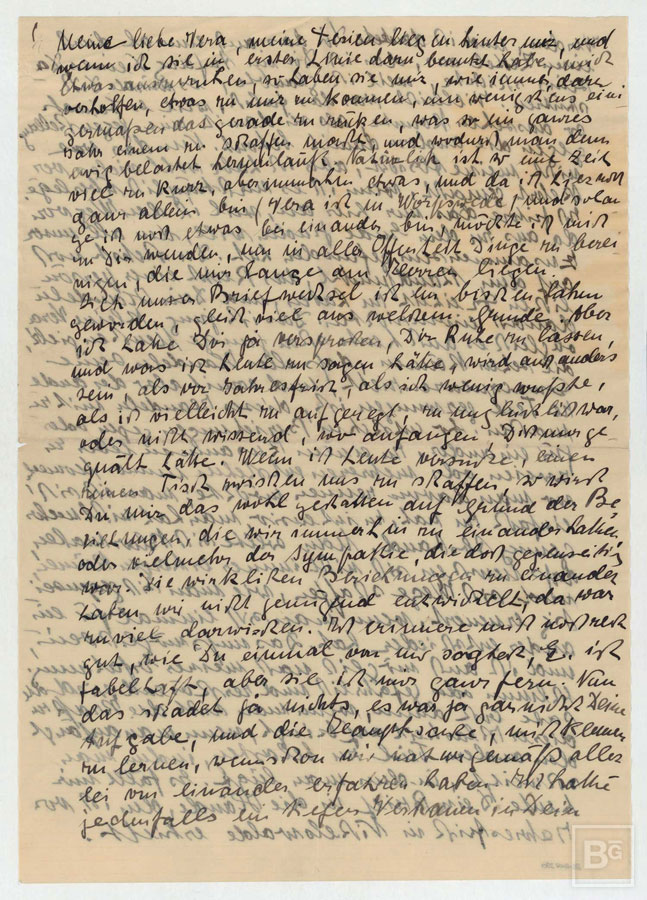 Meine liebe Vera, meine Ferien liegen hinter mir, und
wenn ich sie in erster Linie dazu benutzt habe, mich
etwas auszuruhen, so haben sie mir, wie immer, dazu
verholfen, etwas zu mir zu kommen, um wenigstens eini
germaßen das gerade zu rücken, was so ein ganzes
Jahr einem zu schaffen macht, und wodurch man dann
ewig belastet herumläuft. Natürlich ist so eine Zeit
viel zu kurz, aber immerhin etwas, und da ich hier noch
ganz allein bin (Vera ist in Worpswede) und solan
ge ich noch etwas bei einander bin, möchte ich mich
an Dich wenden, um in aller Offenheit Dinge zu berei
nigen, die mir lange am Herzen liegen.
Sich unser Briefwechsel ist ein bischen lahm
geworden, gleich viel aus welchem Grunde. Aber
ich habe Dir ja versprochen, Dir Ruhe zu lassen,
und was ich heute zu sagen hätte, wird auch anders
sein, als vor Jahresfrist, als ich wenig wußte,
als ich vielleicht zu aufgeregt, zu unglücklich war,
oder nicht wissend, wo anfangen, Dich nur ge
quält hätte. Wenn ich heute versuche, einen
reinen Tisch zwischen uns zu schaffen, so wirst
Du mir das wohl gestatten auf Grund der Be
ziehungen, die wir immerhin zu einander hatten
oder vielmehr der Sympathie, die doch gegenseitig
war. Die wirklichen Beziehungen zu einander
haben wir nicht genügend entwickelt, da war
zuviel dazwischen. Ich erinnere mich noch recht
gut, wie Du einmal von mir sagtest, E. ist
fabelhaft, aber sie ist mir ganz fern. Nun
das schadet ja nichts, es war ja gar nicht Deine
Aufgabe, und die Hauptsache, mich kennen
zu lernen, wenn schon wir naturgemäß aller
lei von einander erfahren haben. Ich hatte
jedenfalls ein tiefes Vertrauen in Dein
BG